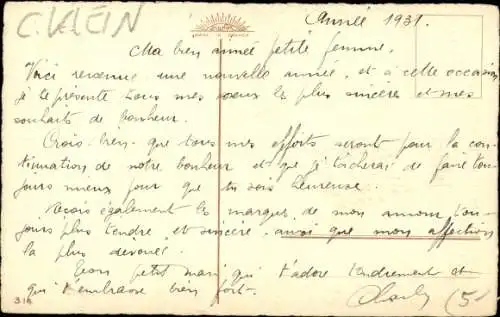 C. KLEIN
Année 1931.
Ma bien aimée petite femme,
Voici revenue une nouvelle année, et à cette occasion
je te présente tous mes vœux les plus sincères et mes
souhaits de bonheur.
Crois bien que tous mes efforts seront pour la con-
tinuation de notre bonheur et que je tâcherai de faire tou-
jours mieux pour que tu sois heureuse.
Reçois également les marques de mon amour tou-
jours plus tendre et sincère ainsi que mon affection
la plus dévouée.
Ton petit mari qui t'adore tendrement et
qui t'embrasse bien fort.
318
(5-